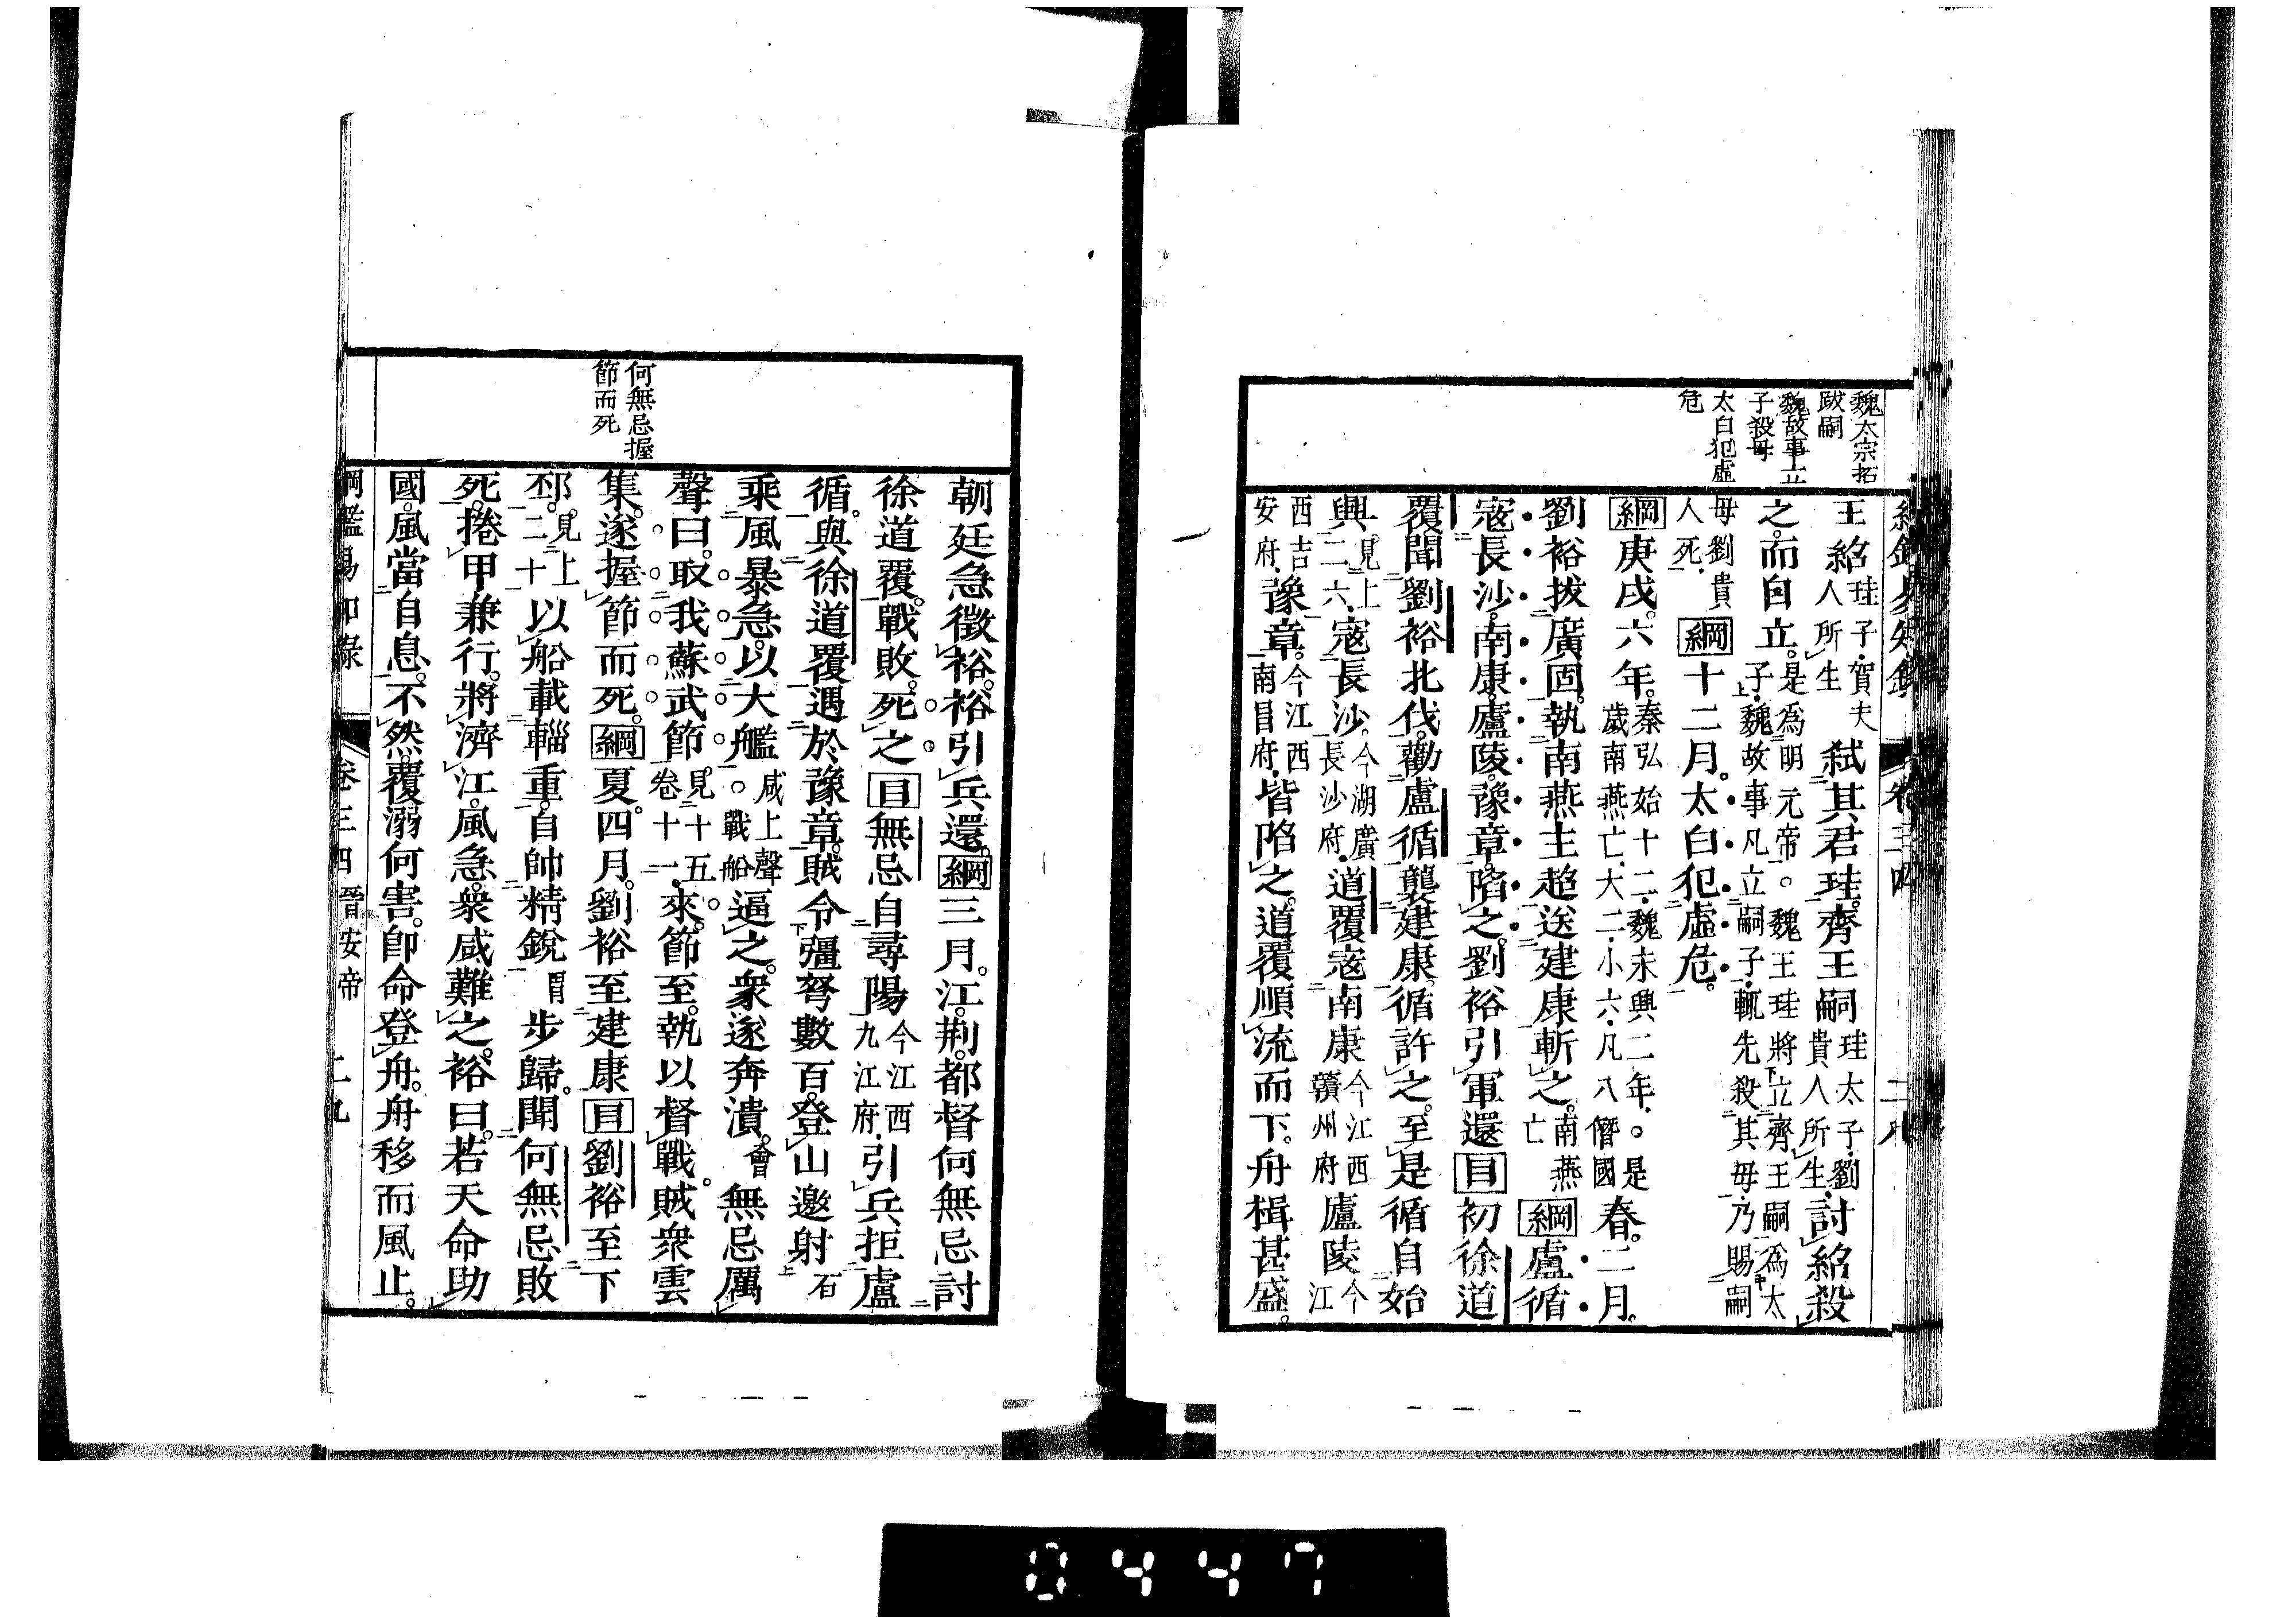 魏太宗拓
跋嗣
魏故事立
子殺母
太白犯虛
危
王紹珪子賀夫人所生弑其君珪齊王嗣珪太子劉貴人所生討紹殺
之而自立是爲明元帝○魏王珪將立齊王嗣爲太子魏故事凡立嗣子輒先殺其母乃賜嗣
母劉貴人死綱十二月太白犯虛危
綱庚戌六年秦弘始十二魏永興二年○是歲南燕亡大二小六凡八僭國春二月
劉裕拔廣固執南燕主超送建康斬之南燕亡綱盧循
寇長沙南康廬陵豫章陷之劉裕引軍還目初徐道
覆聞劉裕北伐勸盧循襲建康循許之至是循自始
興見上二六寇長沙今湖廣長沙府道覆寇南康今江西贛州府廬陵今江
西吉安府豫章今江西南昌府皆陷之道覆順流而下舟楫甚盛
卷三四
二八
何無忌握
節而死
朝廷急徵裕裕引兵還綱三月江荆都督何無忌討
徐道覆戰敗死之目無忌自尋陽今江西九江府引兵拒盧
循與徐道覆遇於豫章賊令彊弩數百登山邀射石
乘風暴急以大艦咸上聲○戰船逼之衆遂奔潰會無忌厲
聲曰取我蘇武節見十五卷十一來節至執以督戰賊衆雲
集遂握節而死綱夏四月劉裕至建康目劉裕至下
邳見上二十以船載輜重自帥精銳胃步歸聞何無忌敗
死捲甲兼行將濟江風急衆咸難之裕曰若天命助
國風當自息不然覆溺何害卽命登舟舟移而風止
綱鑑易知錄 卷三四 晉安帝 二九
0447